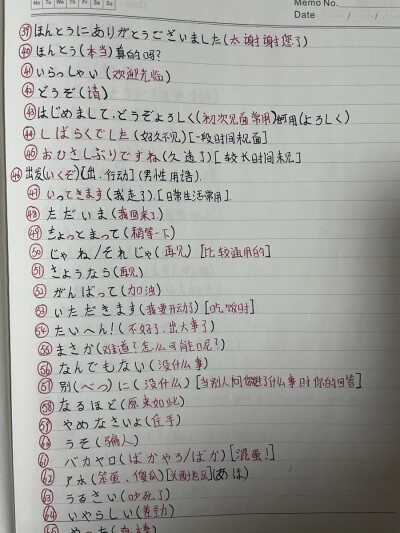 Mo Tu We Th Fr Sa Su
Memo No.
Date / /
㊴ ほんとうにありがとうございました(太谢谢您了)
㊵ ほんとう(本当)真的吗?
㊶ いらっしゃい(欢迎光临)
㊷ どうぞ(请)
㊸ はじめまして、どうぞよろしく(初次见面常用)(よろしく)
㊹ しばらくでした(好久不见)[一段时间未见面]
㊺ おひさしぶりですね(久违了)[较长时间未见]
㊻ 出发(いくぞ)[出、行动](男性用语).
㊼ いってきます(我走了).[日常生活常用].
㊽ ただいま(我回来了)
㊾ ちょっとまって(稍等一下)
㊿ じゃね/それじゃ(再见)[比较通用的]
51 さようなら(再见)
52 がんばって(加油)
53 いただきます(我要开动了)[吃饭时]
54 たいへん!(不好了,出大事了)
55 まさか(难道?怎么可能呢?)
56 なんでもない(没什么事)
57 别(べつ)に(没什么)[当别人问你发生了什么事时你的回答]
58 なるほど(原来如此)
59 やめなさいよ(住手)
60 うそ(骗人)
61 バカヤロ(ばかやろ/ばか)[混蛋!]
62 アホ(笨蛋,傻瓜)[关西地区](あほ)
63 うるさい(吵死了)
64 いやらしい(卑劣)